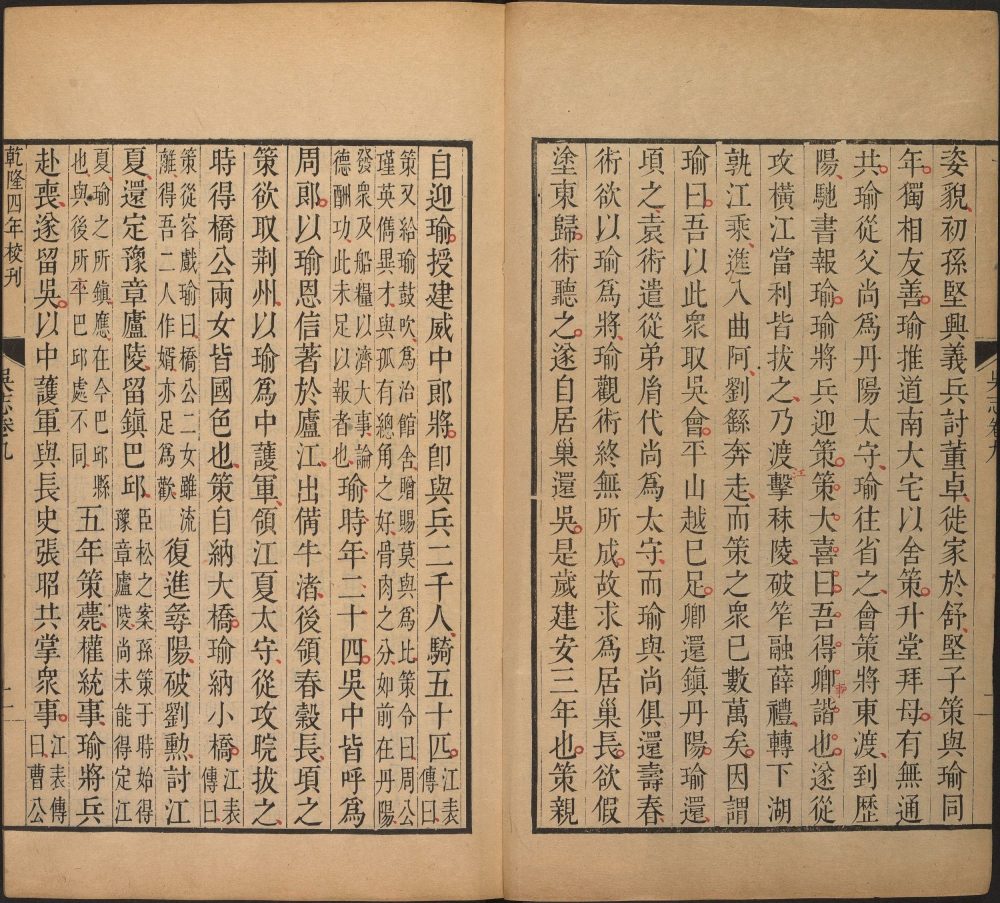 姿貌初孫堅興義兵討董卓徙家於舒堅子策與瑜同
年獨相友善瑜推道南大宅以舍策升堂拜母有無通
共瑜從父尚爲丹陽太守瑜往省之會策將東渡到歷
陽馳書報瑜瑜將兵迎策策大喜曰吾得卿諧也遂從
事
攻橫江當利皆拔之乃渡擊秣陵破笮融薛禮轉下湖
江
孰江乘進入曲阿劉繇奔走而策之衆已數萬矣因謂
瑜曰吾以此衆取吳會平山越已足卿還鎮丹陽瑜還
頃之袁術遣從弟胤代尚爲太守而瑜與尚俱還壽春
術欲以瑜爲將瑜觀術終無所成故求爲居巢長欲假
塗東歸術聽之遂自居巢還吳是歲建安三年也策親
自迎瑜授建威中郎將卽與兵二千人騎五十匹江表
傳曰
策又給瑜鼓吹爲治館舍贈賜莫與爲比策令曰周公
瑾英儁異才與孤有總角之好骨肉之分如前在丹陽
發衆及船糧以濟大事論
德酬功此未足以報者也
瑜時年二十四吳中皆呼爲
周郎以瑜恩信著於廬江出備牛渚後領春穀長頃之
策欲取荆州以瑜爲中護軍領江夏太守從攻晥拔之
時得橋公兩女皆國色也策自納大橋瑜納小橋江表
傳曰
策從容戲瑜曰橋公二女雖流
離得吾二人作婿亦足爲歡
復進尋陽破劉勳討江
夏還定豫章廬陵留鎮巴邱臣松之案孫策于時始得
豫章廬陵尚未能得定江
夏瑜之所鎮應在今巴邱縣
也與後所卒巴邱處不同
五年策薨權統事瑜將兵
赴喪遂留吳以中護軍與長史張昭共掌衆事江表傳
曰曹公
乾隆四年校刊
吳志卷九